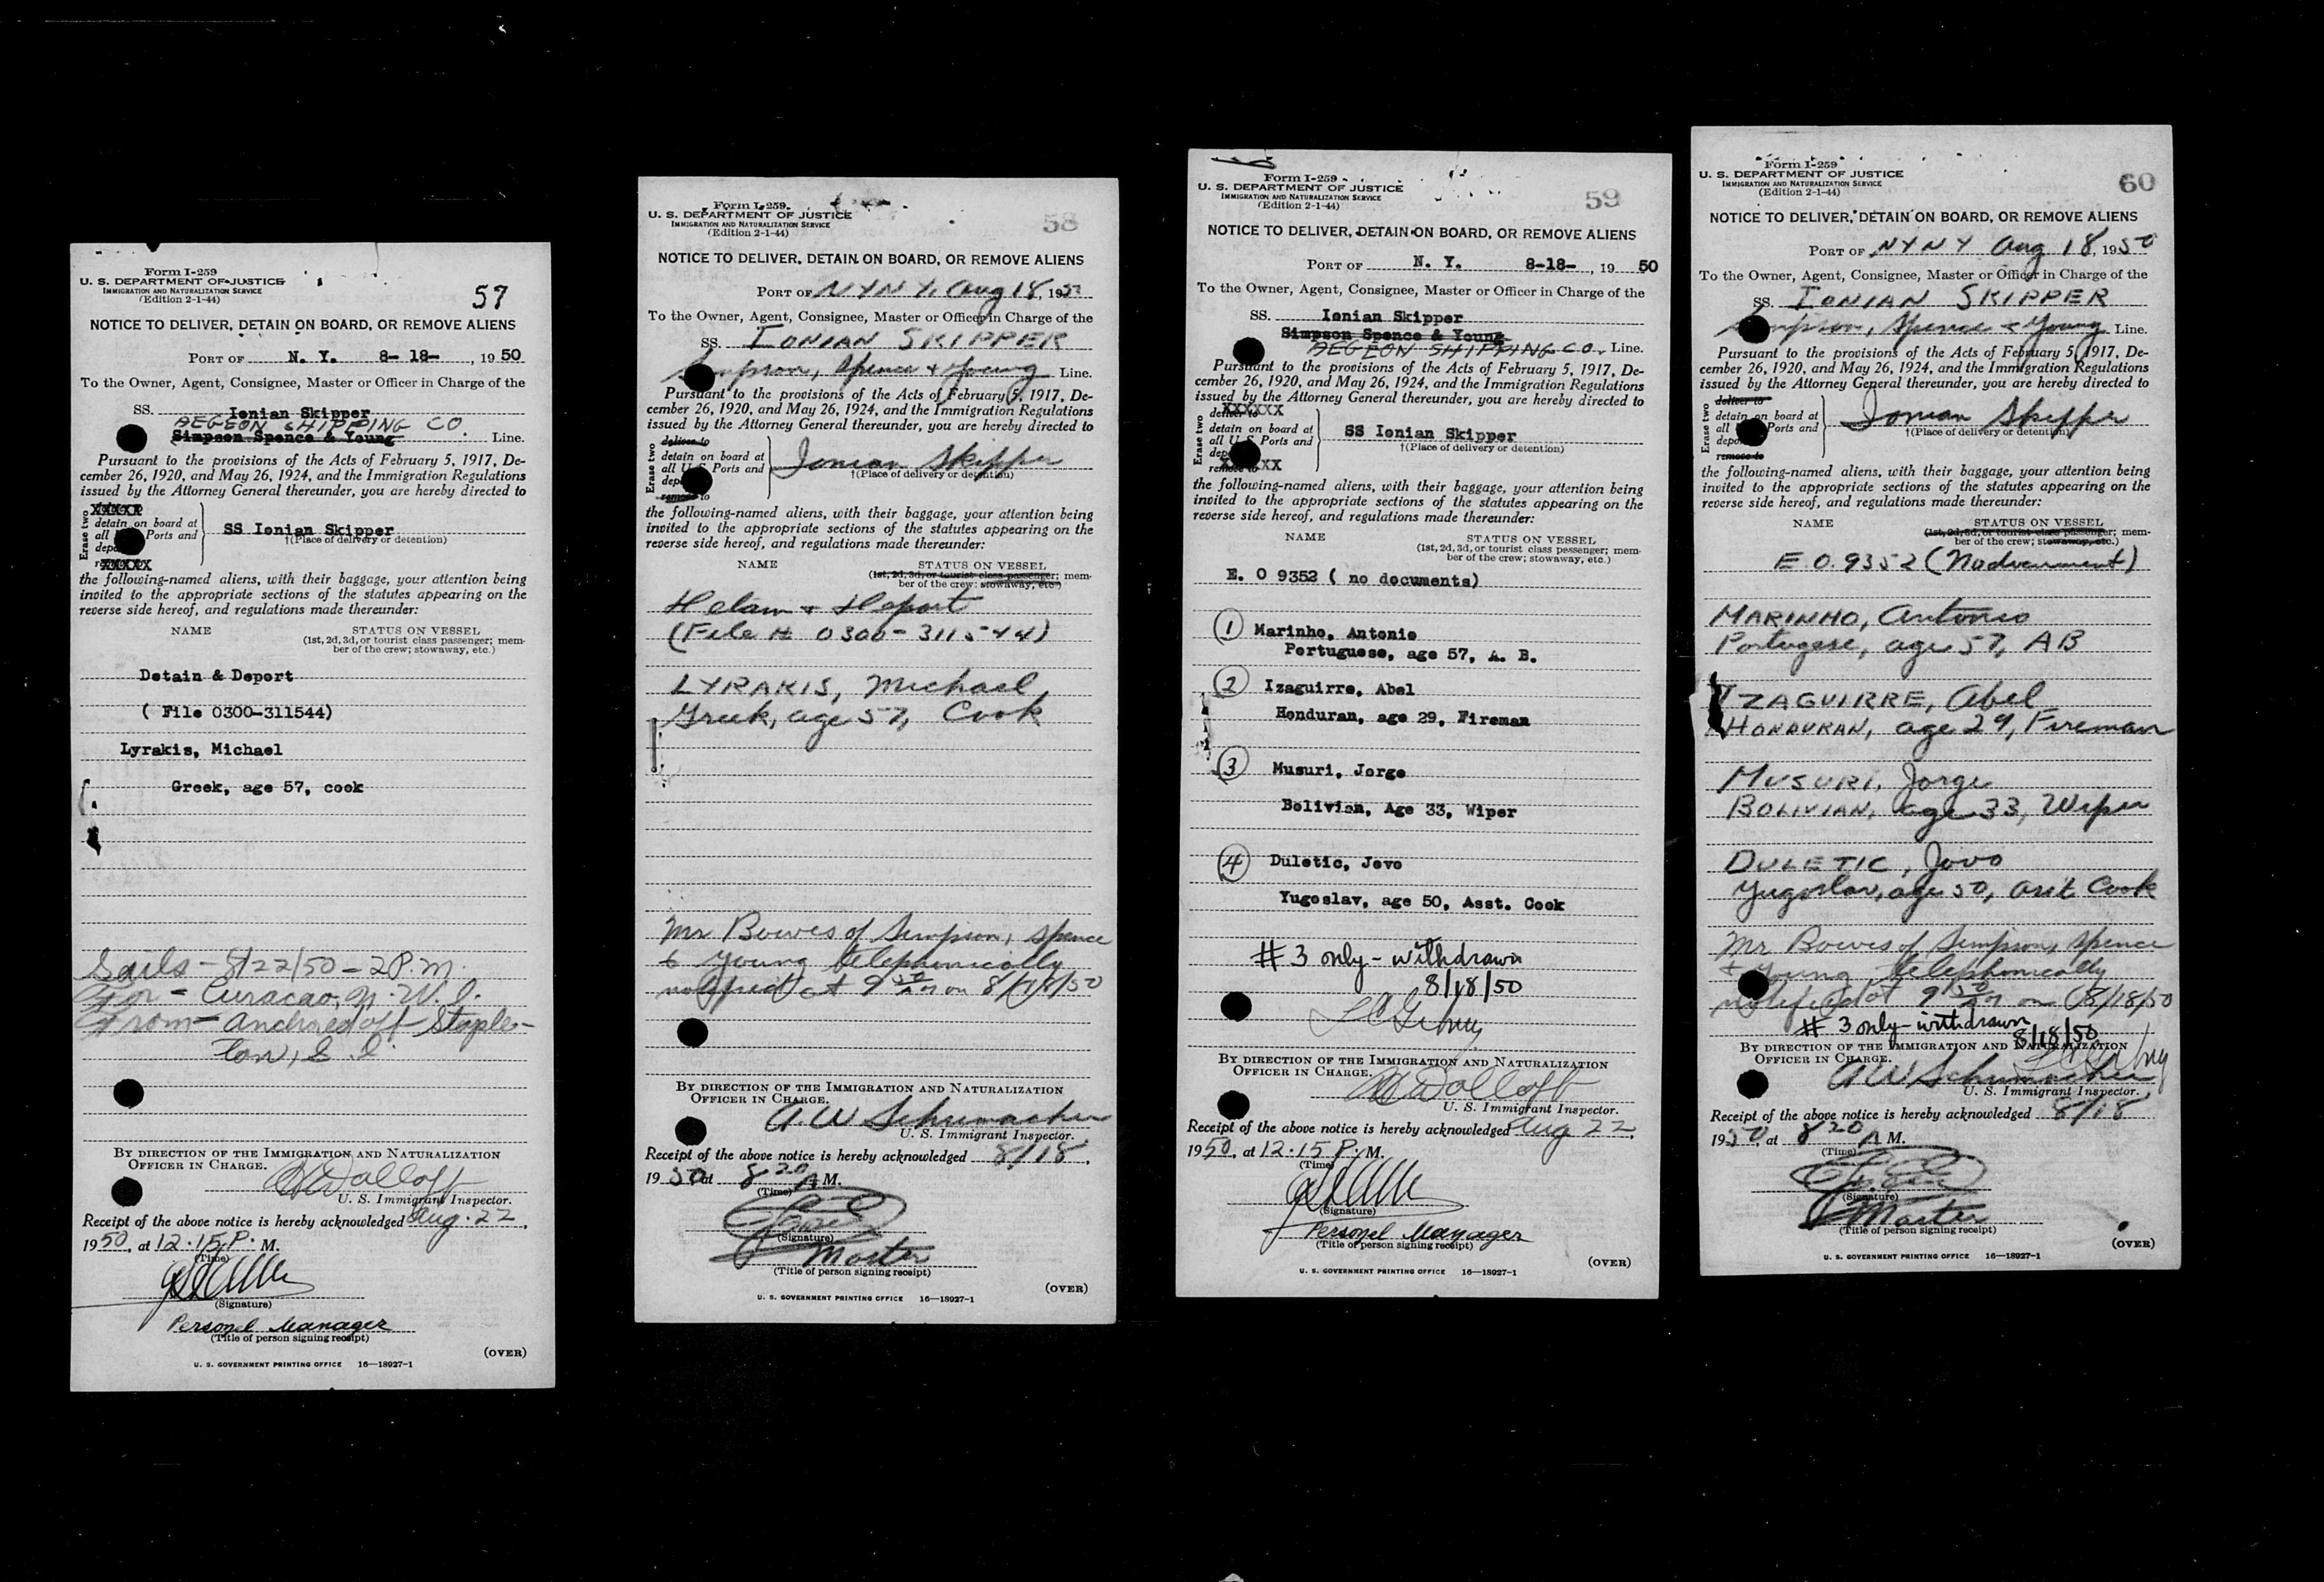 Form I-259
U. S. DEPARTMENT OF JUSTICE
IMMIGRATION AND NATURALIZATION SERVICE
(Edition 2-1-44)
57
NOTICE TO DELIVER, DETAIN ON BOARD, OR REMOVE ALIENS
PORT OF N. Y. 8- 18- , 19 50
To the Owner, Agent, Consignee, Master or Officer in Charge of the
SS. Ionian Skipper
AEGEON SHIPPING CO.
Simpson Spence & Young Line.
Pursuant to the provisions of the Acts of February 5, 1917, De-
cember 26, 1920, and May 26, 1924, and the Immigration Regulations
issued by the Attorney General thereunder, you are hereby directed to
Erase two
XXXXX
detain on board at
all Ports and
SS Ionian Skipper
†(Place of delivery or detention)
XXXXX
the following-named aliens, with their baggage, your attention being
invited to the appropriate sections of the statutes appearing on the
reverse side hereof, and regulations made thereunder:
NAME STATUS ON VESSEL
(1st, 2d, 3d, or tourist class passenger; mem-
ber of the crew; stowaway, etc.)
Detain & Deport
( File 0300-311544)
Lyrakis, Michael
Greek, age 57, cook
Sails - 8/22/50 - 2 P.M.
For - Curacao, N. W. I.
From - Anchored off Staple-
ton, S. I.
BY DIRECTION OF THE IMMIGRATION AND NATURALIZATION
OFFICER IN CHARGE.
U. S. Immigrant Inspector.
Receipt of the above notice is hereby acknowledged Aug. 22,
1950, at 12.15 P. M.
(Time)
(Signature)
Personel Manager
(Title of person signing receipt)
(OVER)
U. S. GOVERNMENT PRINTING OFFICE 16—18927-1
Form I-259
U. S. DEPARTMENT OF JUSTICE
IMMIGRATION AND NATURALIZATION SERVICE
(Edition 2-1-44)
58
NOTICE TO DELIVER, DETAIN ON BOARD, OR REMOVE ALIENS
PORT OF N Y N Y. Aug 18, 1950
To the Owner, Agent, Consignee, Master or Officer in Charge of the
SS. IONIAN SKIPPER
Simpson, Spence & Young Line.
Pursuant to the provisions of the Acts of February 5, 1917, De-
cember 26, 1920, and May 26, 1924, and the Immigration Regulations
issued by the Attorney General thereunder, you are hereby directed to
Erase two
deliver to
detain on board at
all U S Ports and
Ionian Skipper
†(Place of delivery or detention)
remove to
the following-named aliens, with their baggage, your attention being
invited to the appropriate sections of the statutes appearing on the
reverse side hereof, and regulations made thereunder:
NAME STATUS ON VESSEL
(1st, 2d, 3d, or tourist class passenger; mem-
ber of the crew; stowaway, etc.)
(File # 0300-311544)
LYRAKIS, Michael,
Greek, age 57, Cook
Mr Bowes of Simpson, Spence
& Young telephonically
notified at 9 50 AM on 8/18/50
BY DIRECTION OF THE IMMIGRATION AND NATURALIZATION
OFFICER IN CHARGE.
A. W Schumacher
U. S. Immigrant Inspector.
Receipt of the above notice is hereby acknowledged 8/18,
1950 at 8 20 A M.
(Time)
(Signature)
Master
(Title of person signing receipt)
(OVER)
U. S. GOVERNMENT PRINTING OFFICE 16—18927-1
Form I-259
U. S. DEPARTMENT OF JUSTICE
IMMIGRATION AND NATURALIZATION SERVICE
(Edition 2-1-44)
59
NOTICE TO DELIVER, DETAIN ON BOARD, OR REMOVE ALIENS
PORT OF N. Y. 8-18- , 19 50
To the Owner, Agent, Consignee, Master or Officer in Charge of the
SS. Ionian Skipper
Simpson Spence & Young
AEGEON SHIPPING CO. Line.
Pursuant to the provisions of the Acts of February 5, 1917, De-
cember 26, 1920, and May 26, 1924, and the Immigration Regulations
issued by the Attorney General thereunder, you are hereby directed to
Erase two
deliver to XXXXXX
detain on board at
all U S Ports and
SS Ionian Skipper
†(Place of delivery or detention)
the following-named aliens, with their baggage, your attention being
invited to the appropriate sections of the statutes appearing on the
reverse side hereof, and regulations made thereunder:
NAME STATUS ON VESSEL
(1st, 2d, 3d, or tourist class passenger; mem-
ber of the crew; stowaway, etc.)
E. O 9352 ( no documents)
1 Marinho, Antonio
Portuguese, age 57, A. B.
2 Izaguirre, Abel
Honduran, age 29, Fireman
3 Musuri, Jorge
Bolivian, Age 33, Wiper
4 Duletic, Jovo
Yugoslav, age 50, Asst. Cook
# 3 only - withdrawn
8/18/50
BY DIRECTION OF THE IMMIGRATION AND NATURALIZATION
OFFICER IN CHARGE.
U. S. Immigrant Inspector.
Receipt of the above notice is hereby acknowledged Aug 22,
1950, at 12.15 P. M.
(Time)
(Signature)
Personel Manager
(Title of person signing receipt)
(OVER)
U. S. GOVERNMENT PRINTING OFFICE 16—18927-1
Form I-259
U. S. DEPARTMENT OF JUSTICE
IMMIGRATION AND NATURALIZATION SERVICE
(Edition 2-1-44)
60
NOTICE TO DELIVER, DETAIN ON BOARD, OR REMOVE ALIENS
PORT OF N Y N Y Aug 18, 1950
To the Owner, Agent, Consignee, Master or Officer in Charge of the
SS. IONIAN SKIPPER
Simpson, Spence & Young Line.
Pursuant to the provisions of the Acts of February 5, 1917, De-
cember 26, 1920, and May 26, 1924, and the Immigration Regulations
issued by the Attorney General thereunder, you are hereby directed to
Erase two
deliver to
detain on board at
all Ports and
Ionian Skipper
†(Place of delivery or detention)
remove to
the following-named aliens, with their baggage, your attention being
invited to the appropriate sections of the statutes appearing on the
reverse side hereof, and regulations made thereunder:
NAME STATUS ON VESSEL
(1st, 2d, 3d, or tourist class passenger; mem-
ber of the crew; stowaway, etc.)
E. O. 9352 (No document)
MARINHO, Antonio
Portugese, age 57, AB
IZAGUIRRE, Abel
HONDURAN, age 29, Fireman
MUSURI, Jorge
BOLIVIAN, age 33, Wiper
DULETIC, Jovo
Yugoslav, age 50, Asst. Cook
Mr Bowes of Simpson, Spence
& Young telephonically
notified at 9 50 AM on 8/18/50
# 3 only - withdrawn
8/18/50
BY DIRECTION OF THE IMMIGRATION AND NATURALIZATION
OFFICER IN CHARGE.
A W Schumacher
U. S. Immigrant Inspector.
Receipt of the above notice is hereby acknowledged 8/18
1950, at 8 20 A M.
(Time)
(Signature)
Master
(Title of person signing receipt)
(OVER)
U. S. GOVERNMENT PRINTING OFFICE 16—18927-1